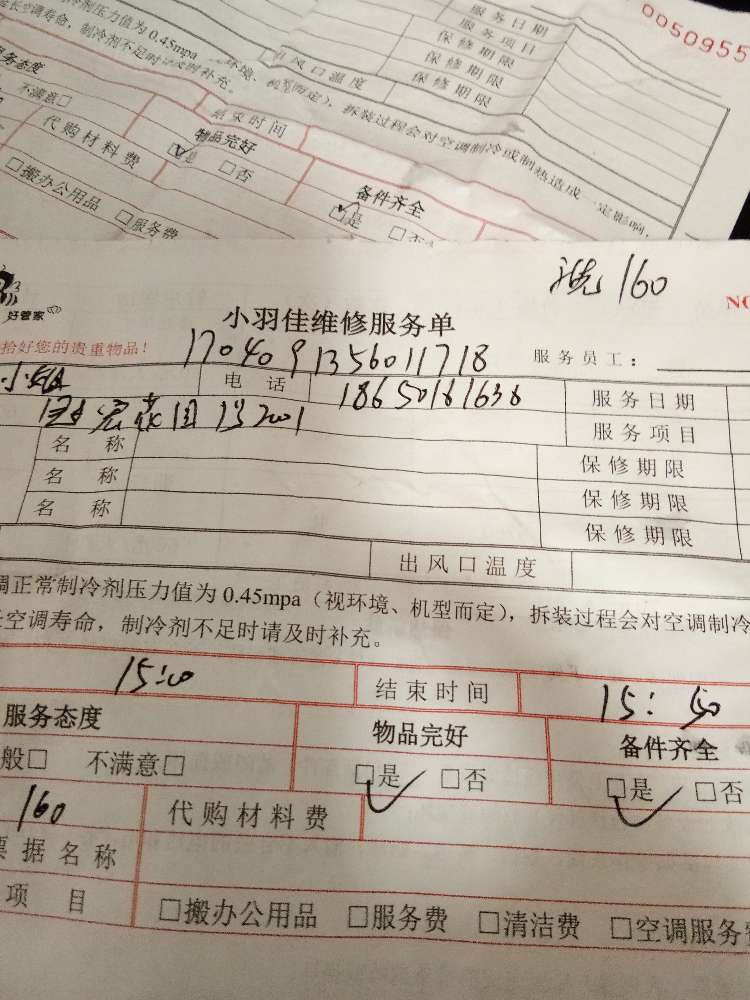 0050955
服务日期
服务项目
保修期限
保修期限
出风口温度
保修期限
制冷剂压力值为0.45mpa
环境、机型而定），拆装过程会对空调制冷或制热造成一定影响，
长空调寿命，制冷剂不足时请及时补充。
服务态度
不满意□
结束时间
代购材料费
物品完好
□是 □否
□搬办公用品 □服务费
备件齐全
□是 □否
洗160
好管家
小羽佳维修服务单
NO
拾好您的贵重物品！
1704091356011718
服务员工：
电 话
18650181638
服务日期
2001
服务项目
名 称
保修期限
名 称
保修期限
名 称
保修期限
出风口温度
调正常制冷剂压力值为0.45mpa（视环境、机型而定），拆装过程会对空调制冷
长空调寿命，制冷剂不足时请及时补充。
15:00
结束时间
15:50
服务态度
物品完好
备件齐全
般□ 不满意□
□是 □否
□是 □否
160
代购材料费
票据名称
项 目
□搬办公用品 □服务费 □清洁费 □空调服务费